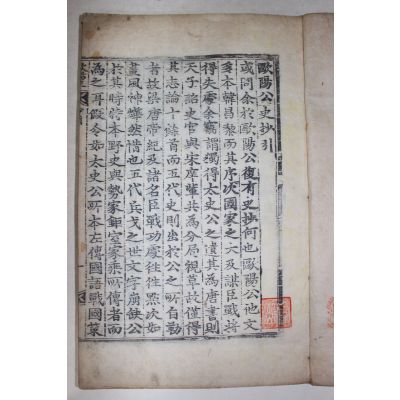 歐陽公史抄引
或問余於歐陽公復有史抄何也歐陽公他文
多本韓昌黎而其序次國家之大及謀臣戰將
得失處余竊謂獨得太史公之遺其爲唐書則
天子詔史官與宋庠輩共爲分局視草故僅得
其志論十餘首而五代史則出於公之所自勒
者故梁唐帝紀及諸名臣戰功處往往點次如
畫風神燁然惜也五代兵戈之世文字崩缺公
於其時特本野史與勢家鉅室家乘所傳者而
為之耳假令如太史公所本左傳國語戰國策